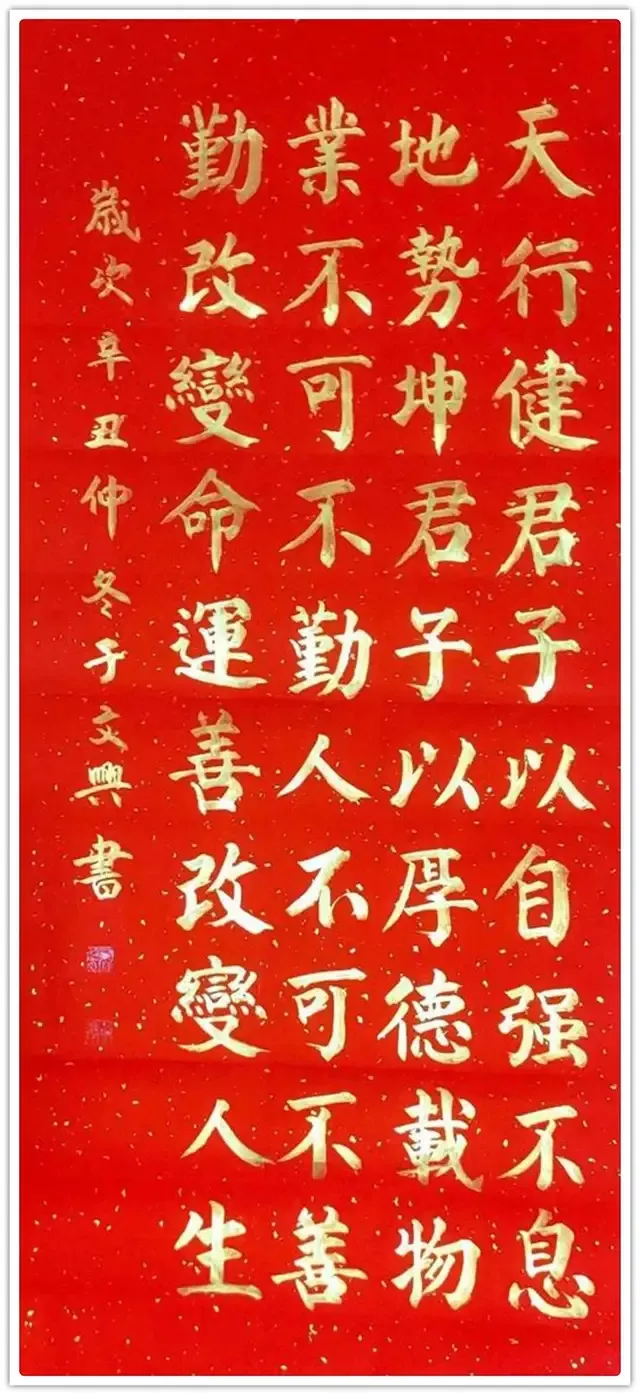 天行健君子以自强不息
地势坤君子以厚德載物
業不可不勤人不可不善
勤改變命運善改變人生
歲次辛丑仲冬于文興書